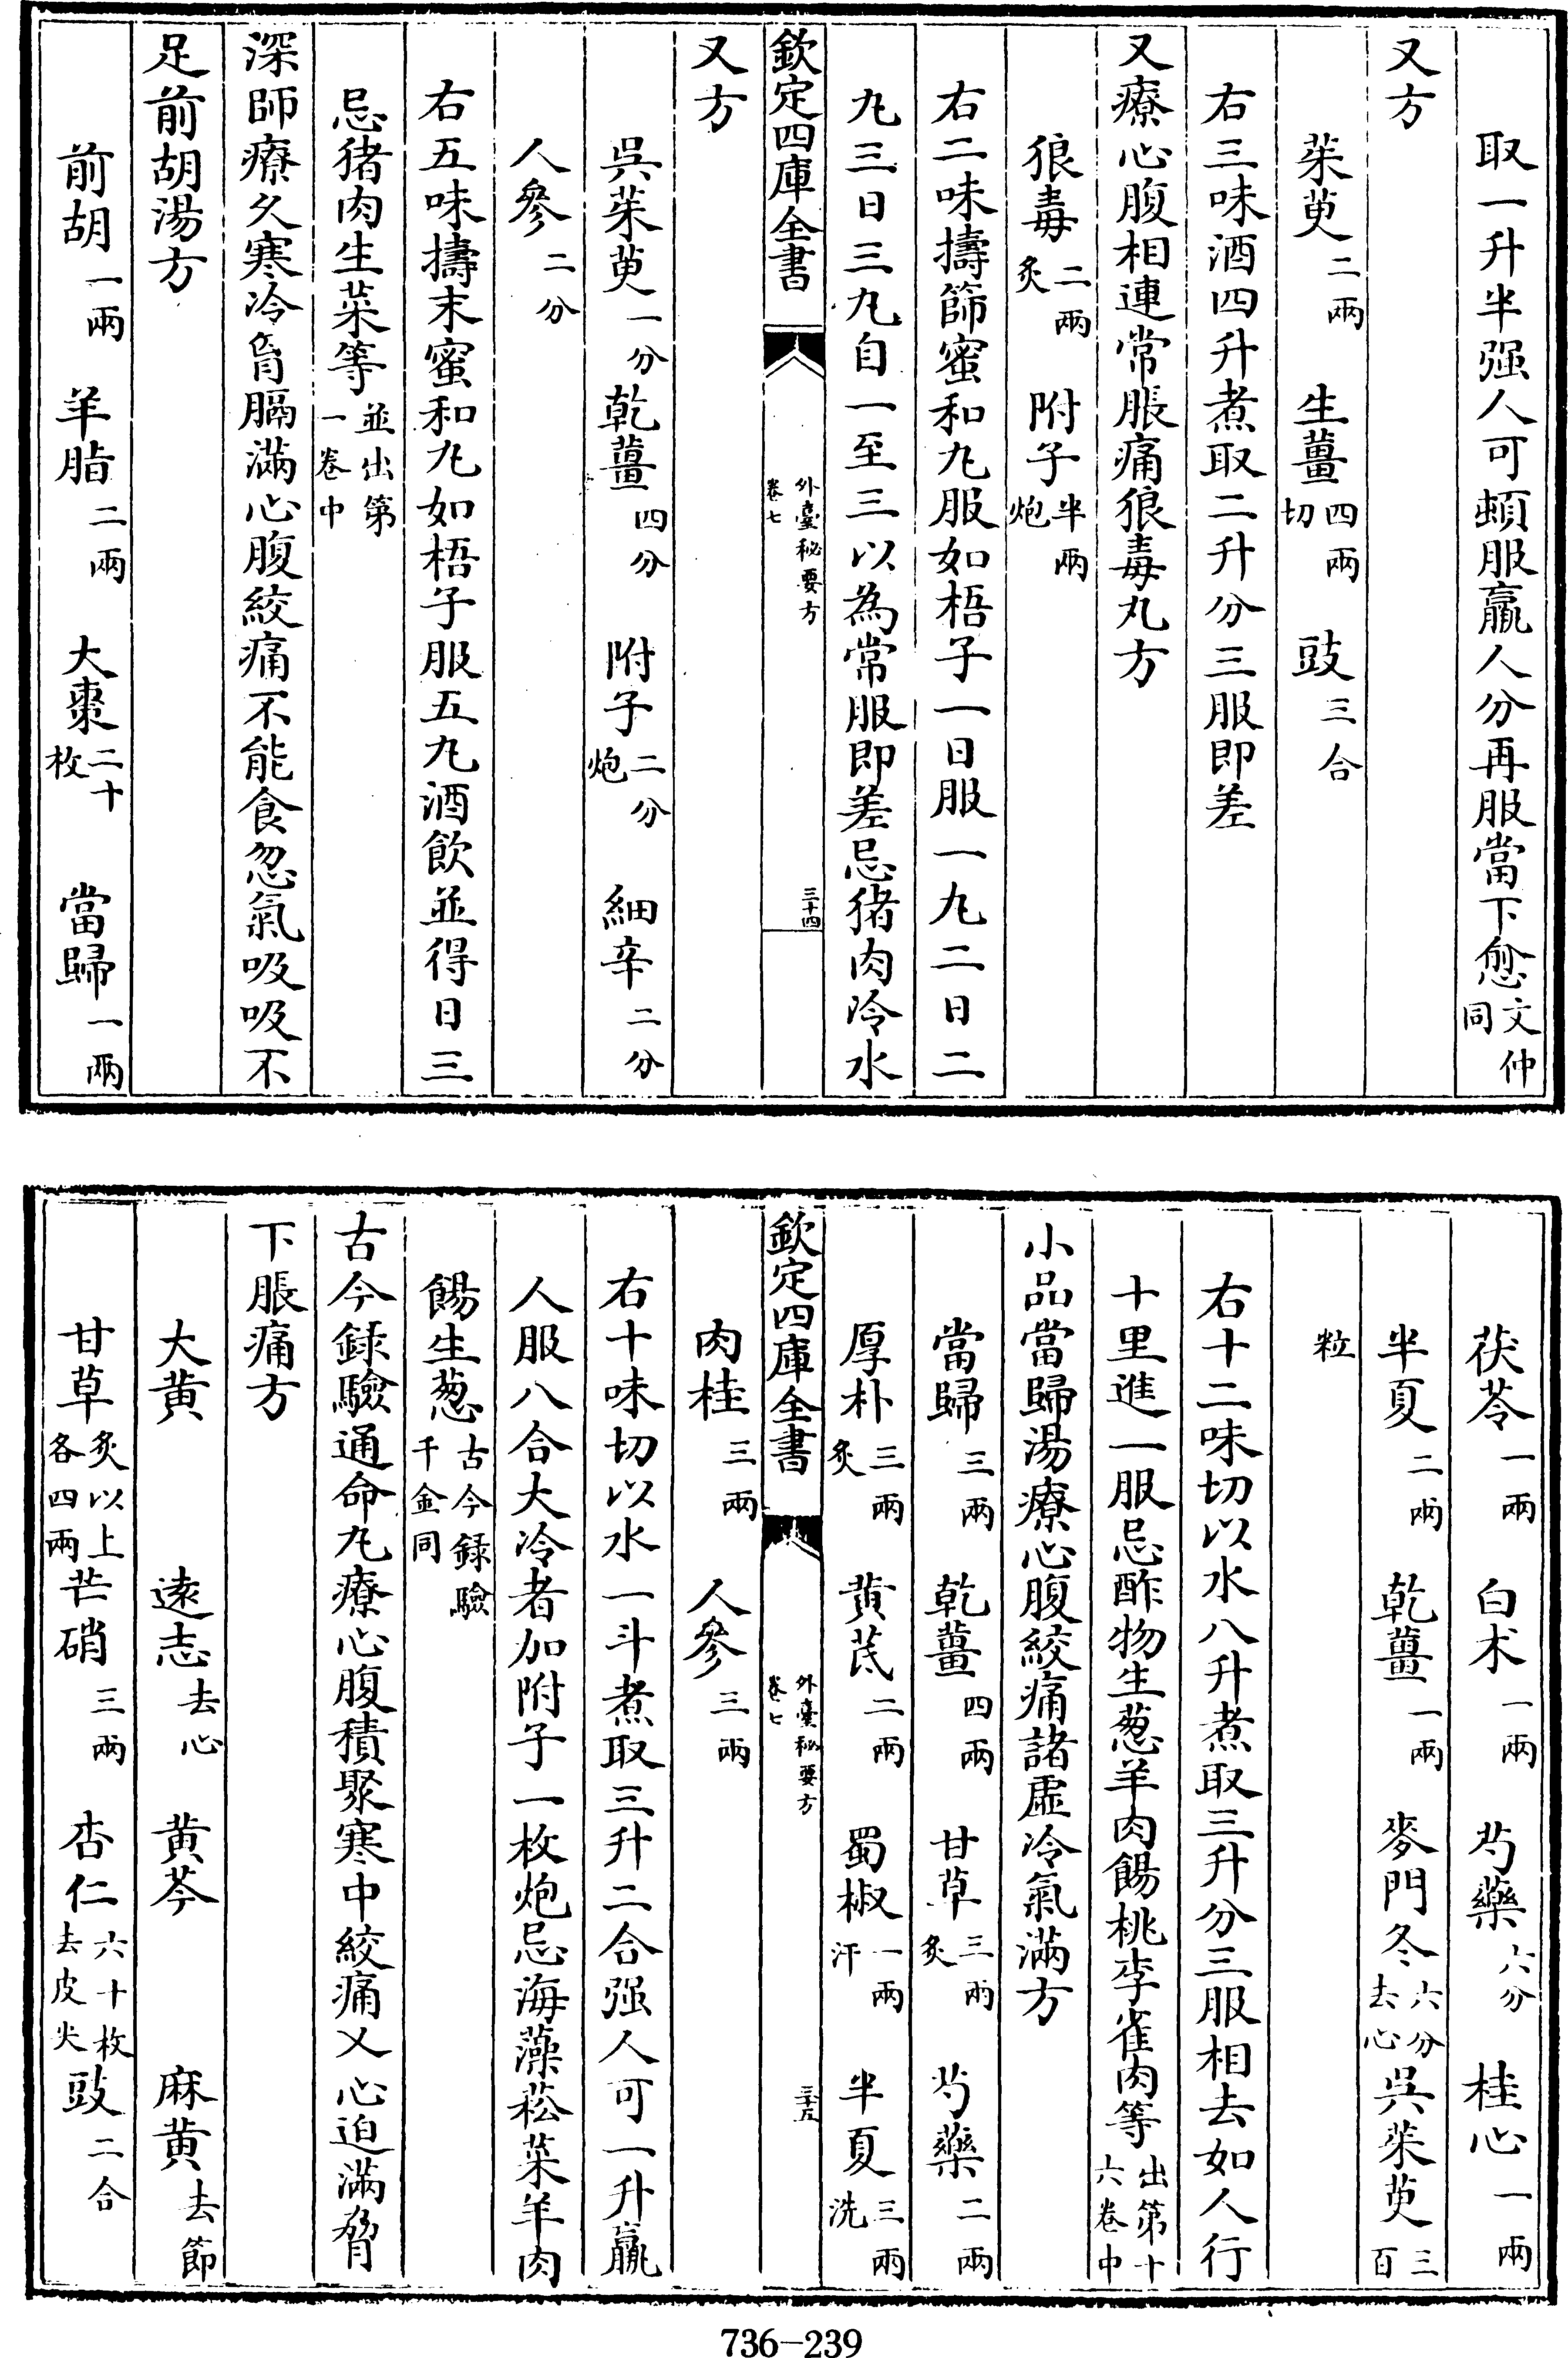 取一升半强人可頓服羸人分再服當下愈文仲同
又方
茱萸二兩 生薑四兩切 豉三合
右三味酒四升煮取二升分三服即差
又療心腹相連常脹痛狼毒丸方
狼毒二兩炙 附子半兩炮
右二味擣篩蜜和丸服如梧子一日服一丸二日二
丸三日三丸自一至三以為常服即差忌猪肉冷水
欽定四庫全書 外臺秘要方卷七 三十四
又方
吳茱萸一分 乾薑四分 附子二分炮 細辛二分
人參二分
右五味擣末蜜和丸如梧子服五丸酒飲並得日三
忌猪肉生菜等並出第一卷中
深師療久寒冷胷膈滿心腹絞痛不能食忽氣吸吸不
足前胡湯方
前胡一兩 羊脂二兩 大棗二十枚 當歸一兩
茯苓一兩 白术一兩 芍藥六分 桂心一兩
半夏二兩 乾薑一兩 麥門冬六分去心 吳茱萸三百
粒
右十二味切以水八升煮取三升分三服相去如人行
十里進一服忌酢物生葱羊肉餳桃李雀肉等出第十六卷中
小品當歸湯療心腹絞痛諸虛冷氣滿方
當歸三兩 乾薑四兩 甘草三兩炙 芍藥二兩
厚朴三兩炙 黄芪二兩 蜀椒一兩汗 半夏三兩洗
欽定四庫全書 外臺秘要方卷七 三十五
肉桂三兩 人參三兩
右十味切以水一斗煮取三升二合强人可一升羸
人服八合大冷者加附子一枚炮忌海藻菘菜羊肉
餳生葱古今録驗千金同
古今録驗通命丸療心腹積聚寒中絞痛又心迫滿脅
下脹痛方
大黄 逺志去心 黄芩 麻黄去節
甘草炙以上各四兩 芒硝三兩 杏仁六十枚去皮尖 豉二合
736-239